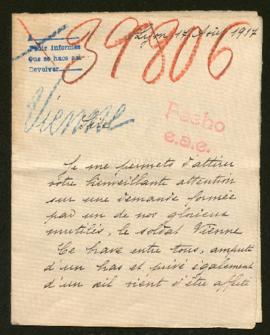 39806
Lyon 17 Août 1917
Pedir informes
Que se hace así
Devolver
Vienne
Sire
Fecho
e.a.e.
Je me permets d'attirer
votre bienveillante attention
sur une demande formée
par un de nos glorieux
mutilés, le soldat Vienne
Ce brave entre tous, amputé
d'un bras et privé également
d'un œil vient d'être affecté